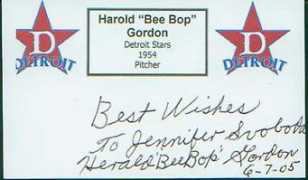 Harold "Bee Bop"
Gordon
Detroit Stars
1954
Pitcher
D
DETROIT
D
DETROIT
Best Wishes
To Jennifer Svoboda
Harold "BeeBop" Gordon
6-7-05